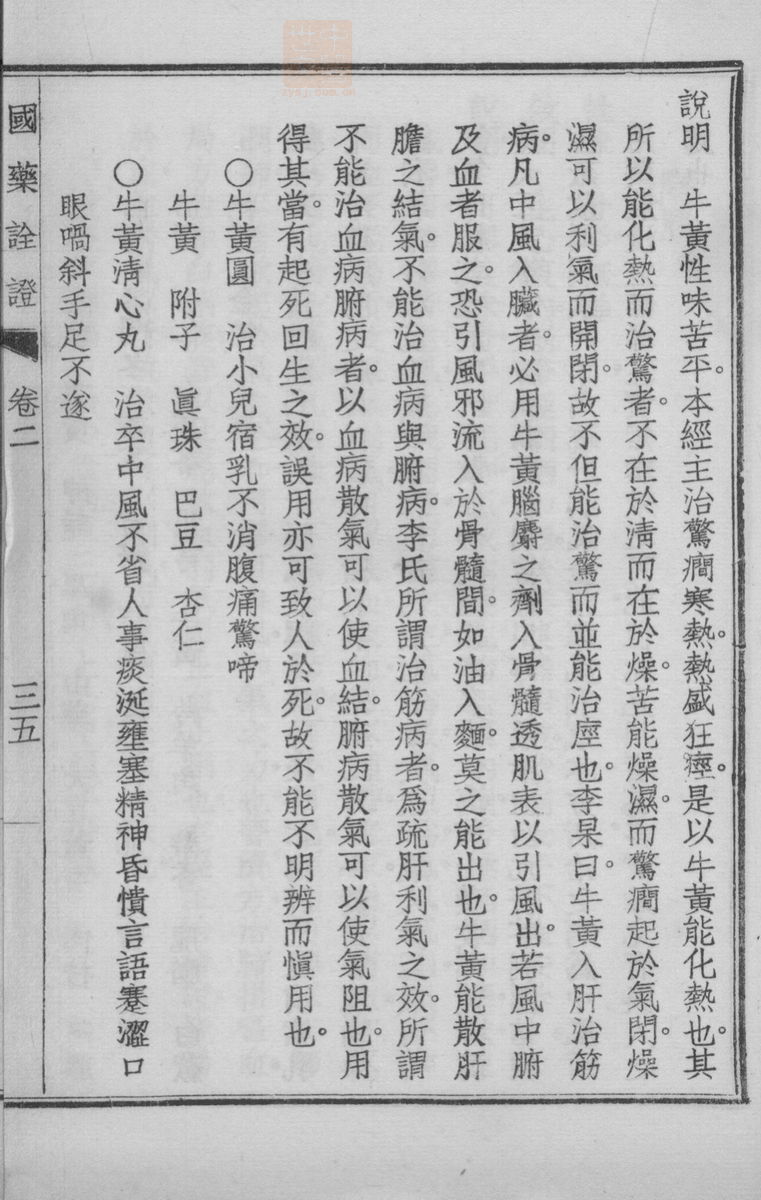 說明　牛黃性味苦平。本經主治驚癎寒熱。熱盛狂痙。是以牛黃能化熱也。其
所以能化熱而治驚者。不在於淸而在於燥。苦能燥濕。而驚癎起於氣閉。燥
濕可以利氣而開閉。故不但能治驚而並能治痙也。李杲曰。牛黃入肝治筋
病。凡中風入臟者。必用牛黃腦麝之劑入骨髓透肌表以引風出。若風中腑
及血者服之。恐引風邪流入於骨髓間。如油入麵。莫之能出也。牛黃能散肝
膽之結氣。不能治血病與腑病。李氏所謂治筋病者。爲疏肝利氣之效。所謂
不能治血病腑病者。以血病散氣可以使血結。腑病散氣可以使氣阻也。用
得其當。有起死回生之效。誤用亦可致人於死。故不能不明辨而愼用也。
〇牛黃圓　治小兒宿乳不消腹痛驚啼
牛黃　附子　眞珠　巴豆　杏仁
〇牛黃淸心丸　治卒中風不省人事痰涎壅塞精神昏憒言語蹇澀口
眼喎斜手足不遂
國藥詮證　卷二　三五
中醫世家
zysj.com.cn